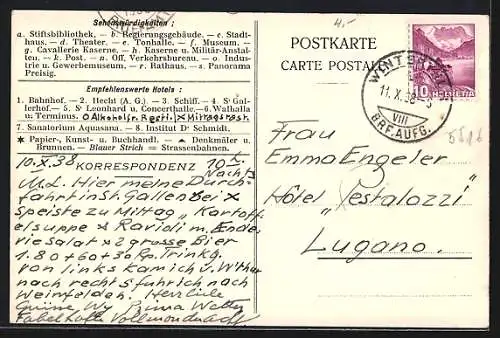 Sehenswürdigkeiten :
a. Stiftsbibliothek. — b. Regierungsgebäude. — c. Stadt-
haus. — d. Theater. — e. Tonhalle. — f. Museum. —
g. Cavallerie Kaserne. — h. Kaserne u. Militär-Anstal-
ten. — k. Post. — n. Öff. Verkehrsbureau. — o. Indus-
trie u. Gewerbemuseum. — r. Rathaus. — s. Panorama
Preisig.
Empfehlenswerte Hotels :
1. Bahnhof. — 2. Hecht (A. G.). — 3. Schiff. — 4. St Gal-
lerhof. — 5. St Leonhard u. Concerthalle. — 6. Walhalla
u. Terminus. O Alkoholfr. Rest. X Mittagsrast
7. Sanatorium Aquasana. — 8. Institut Dr Schmidt.
★ Papier-, Kunst- u. Buchhandl. — Denkmäler u.
Brunnen. — Blauer Strich = Strassenbahnen.
10.X.38 KORRESPONDENZ 10
Nachts
M.L. Hier meine Durch-
fahrt in St. Gallen. Bei X
speiste zu Mittag „Kartoff
elsuppe X Ravioli m. Endi
viesalat X 2 grosse Bier
1.80 + 60 + 30 Rp. Trinkg.
von links kam ich u.
nach rechts fuhr ich nach
Weinfelden. Herzliche
Vollmondnacht
POSTKARTE
CARTE POSTALE
4.-
10 HELVETIA
WINTERTHUR
11.X.38
VIII
BRF.AUFG.
Frau
Emma Engeler
Hôtel „Pestalozzi"
Lugano.